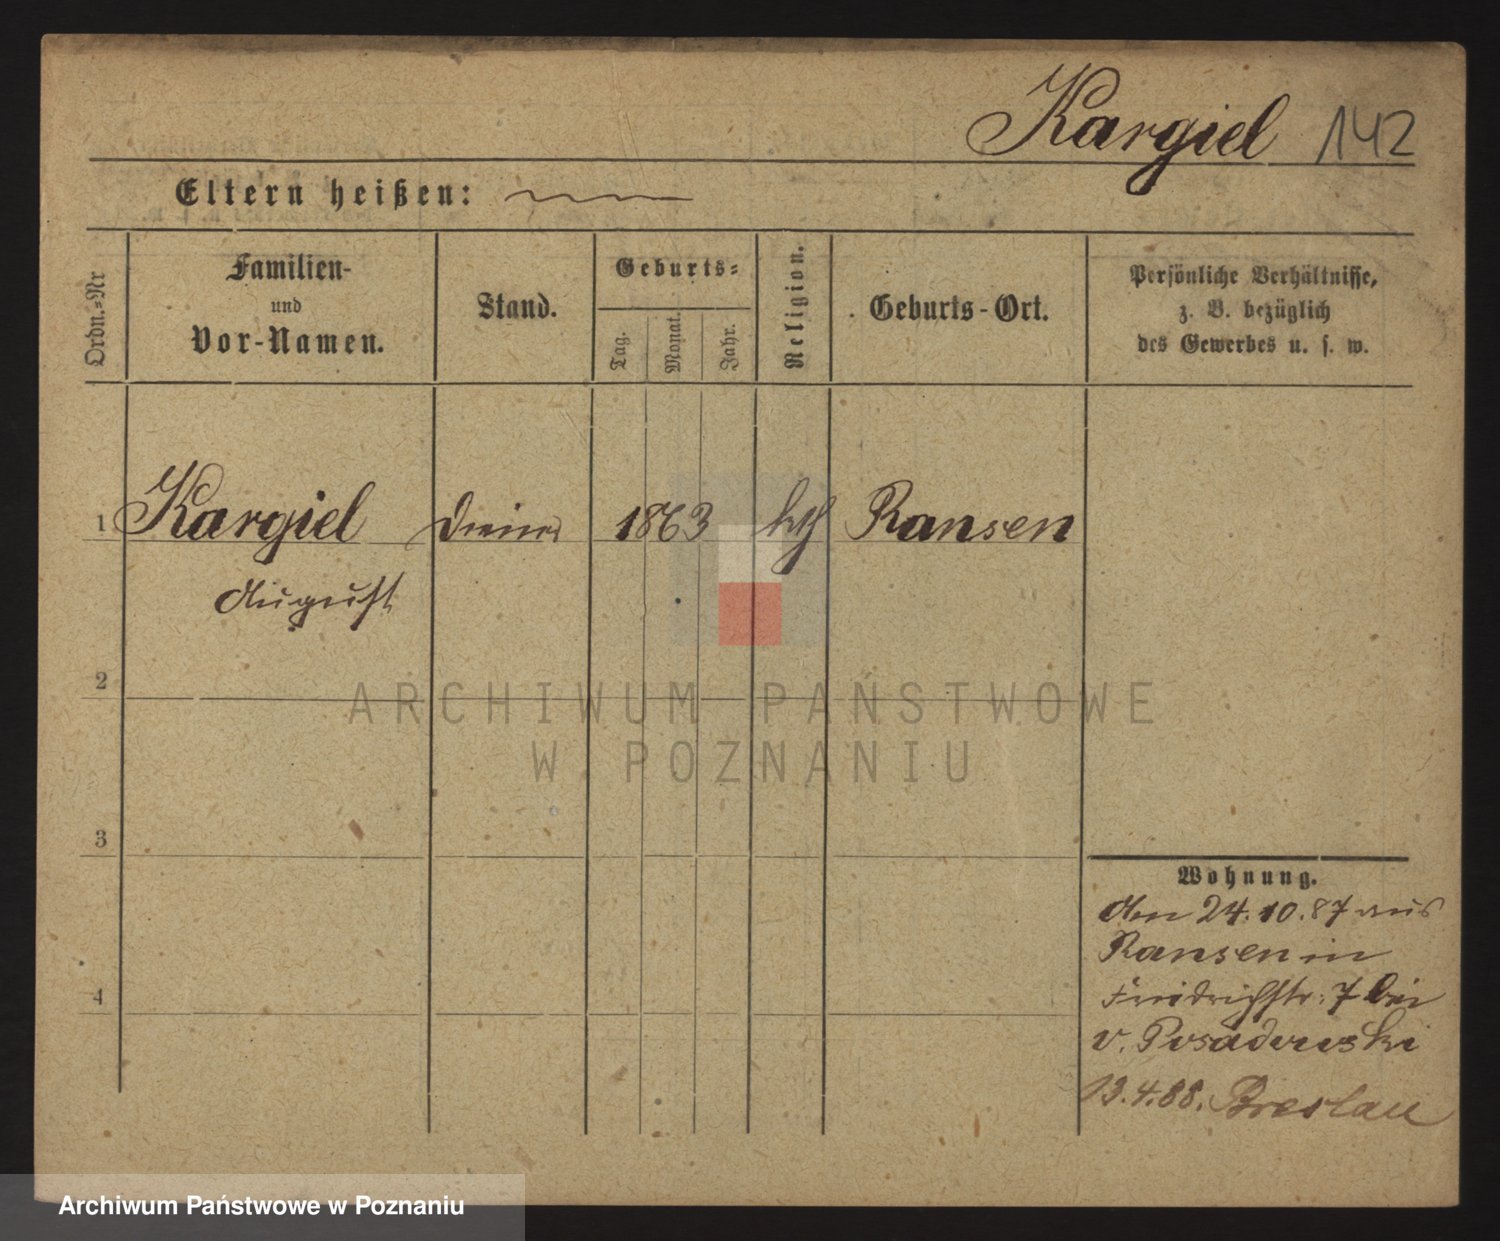 Kargiel 142
Eltern heißen:
Ordn.-Nr
Familien-
und
Vor-Namen.
Stand.
Geburts-
Tag.
Monat.
Jahr.
Religion.
Geburts-Ort.
Persönliche Verhältnisse,
z. B. bezüglich
des Gewerbes u. s. w.
1 Kargiel Diener 1863 kth Ransen
August
2
3
4
Wohnung.
den 24.10.87 aus
Ransen in
Friedrichstr: 7 bei
v. Posadowski
13.4.88. Breslau
ARCHIWUM PAŃSTWOWE
W POZNANIU
Archiwum Państwowe w Poznaniu